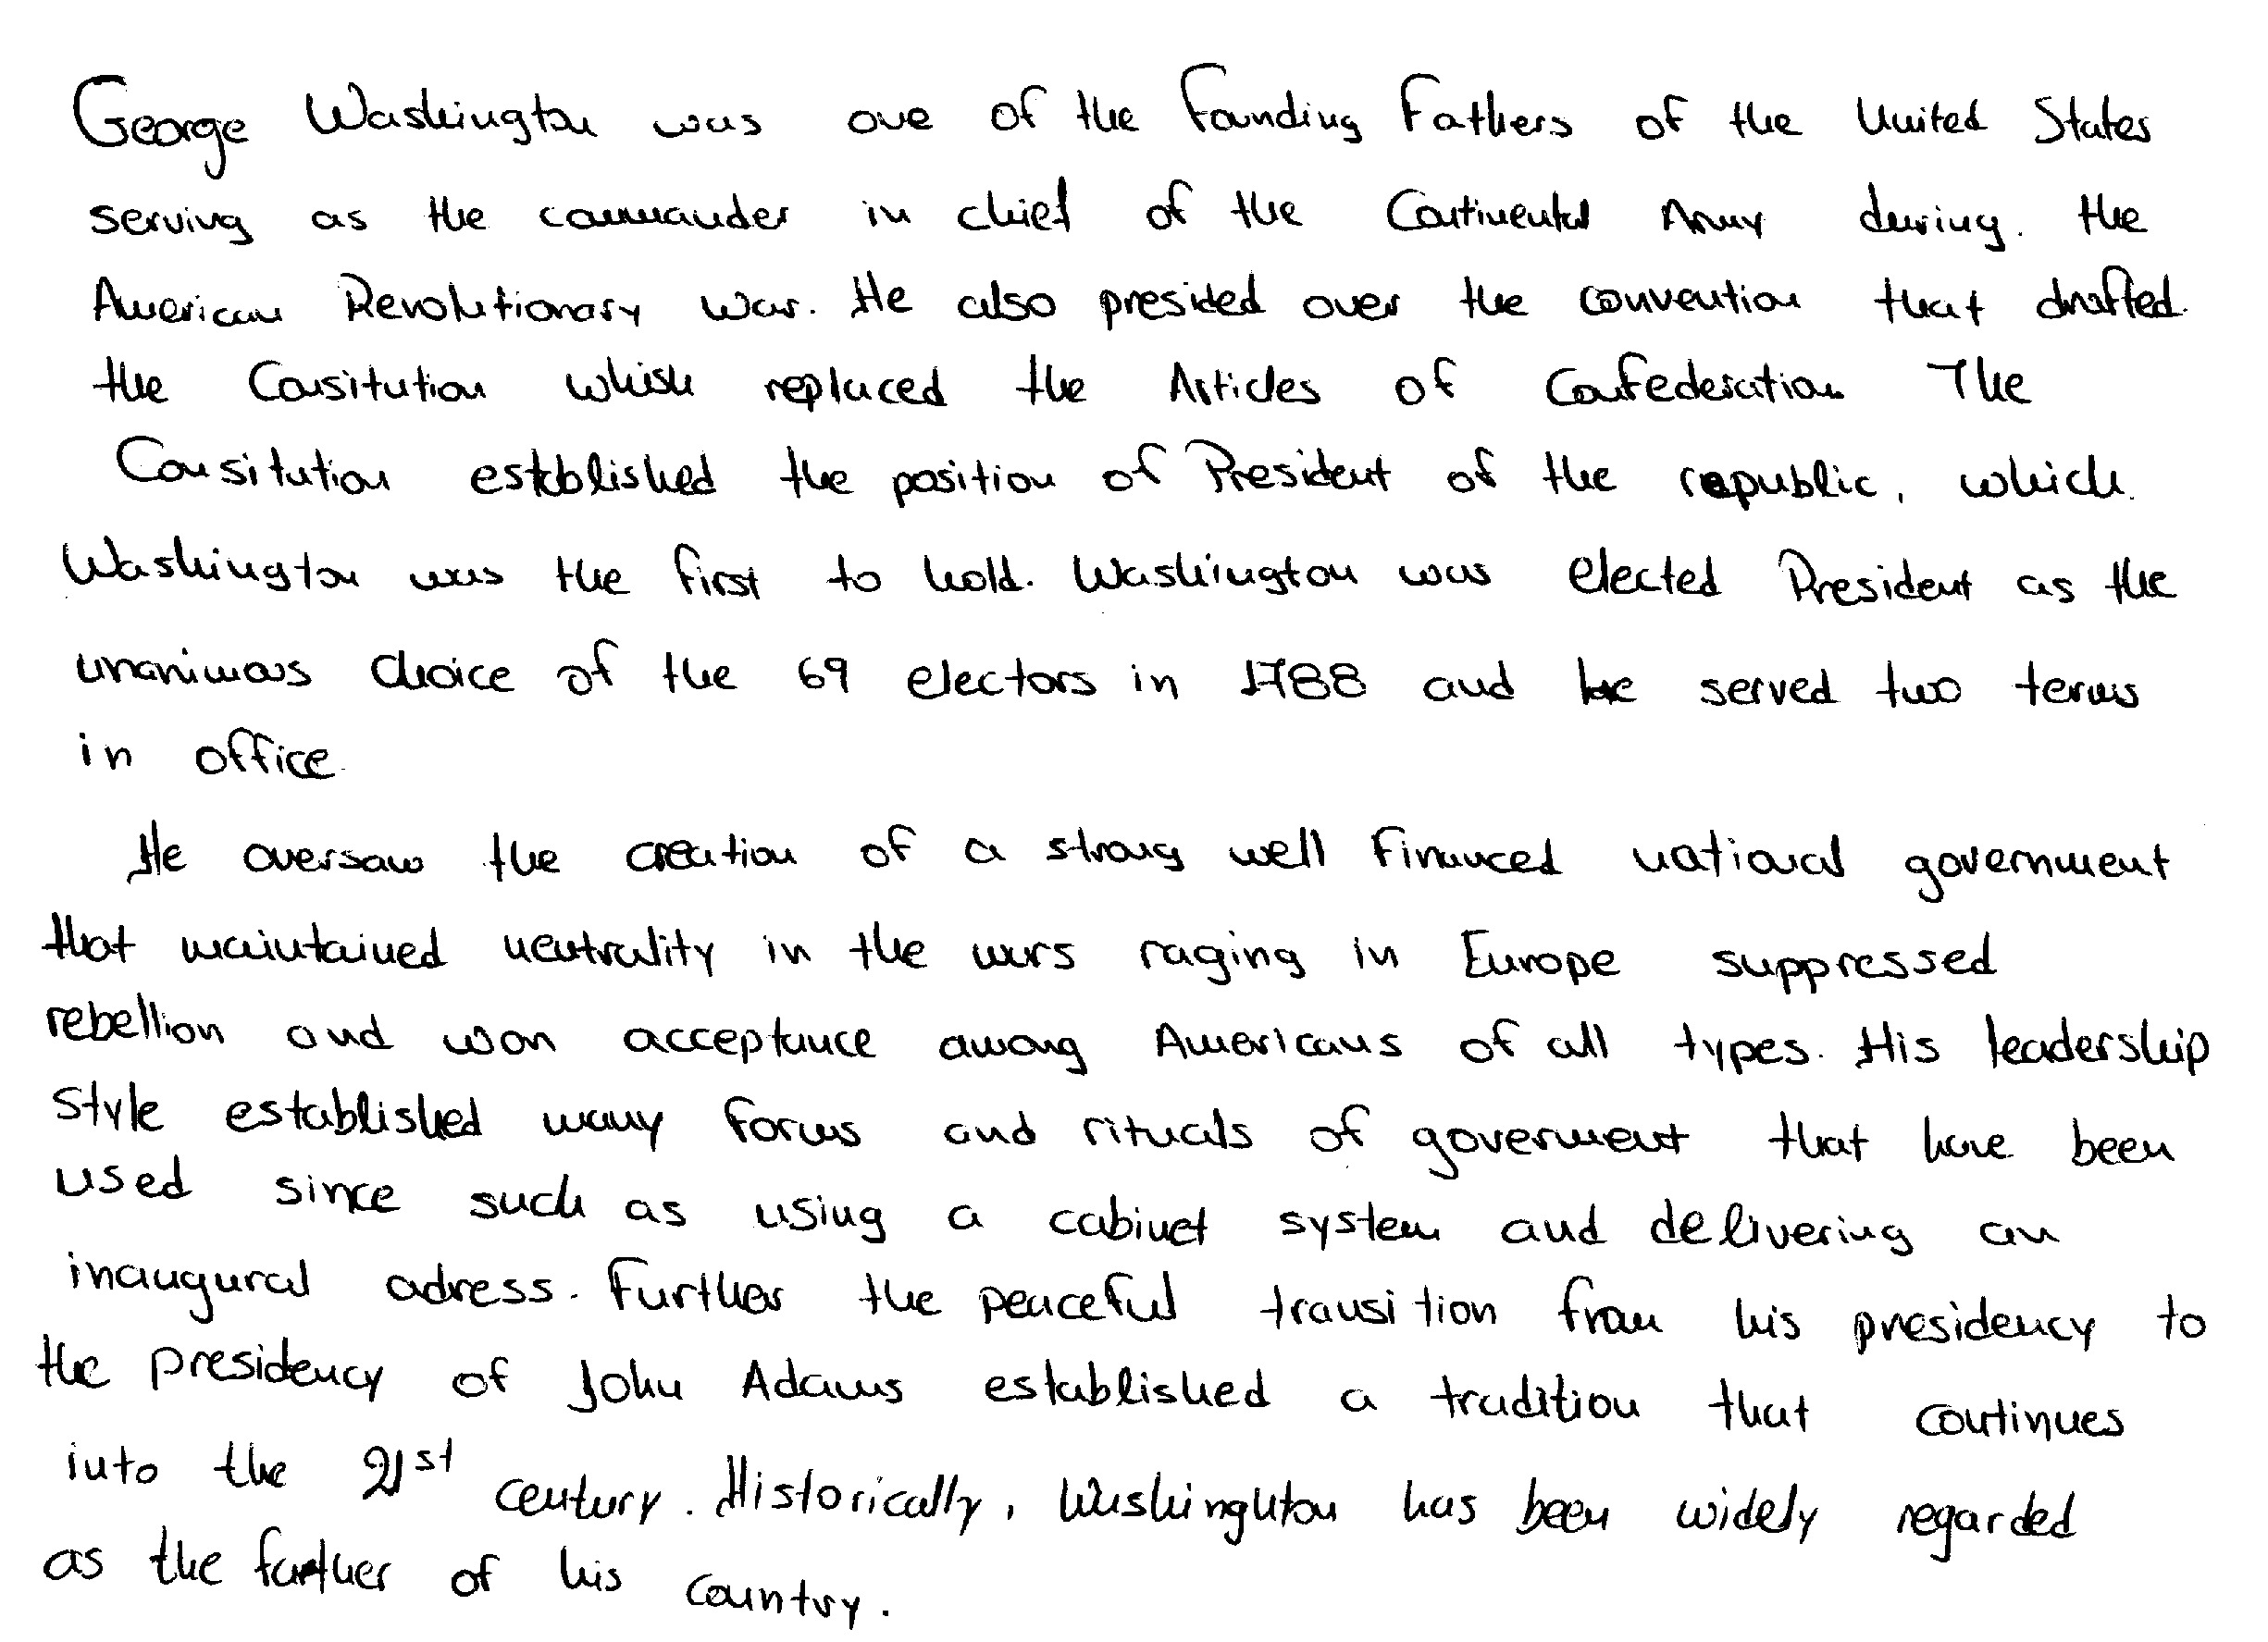 George Washington was one of the Founding Fathers of the United States
serving as the commander in chief of the Continental Army during. the
American Revolutionary War. He also presided over the convention that drafted.
the Consitution which replaced the Articles of Confederation The
Consitution established the position of President of the republic, which.
Washington was the first to hold. Washington was elected President as the
unanimous choice of the 69 electors in 1788 and he served two terms
in office.
He oversaw the creation of a strong well financed national government
that maintained neutrality in the wars raging in Europe suppressed
rebellion and won acceptance among Americans of all types. His leadership
style established many forms and rituals of goverment that have been
used since such as using a cabinet system and delivering an
inaugural adress. Further the peaceful transition from his presidency to
the presidency of John Adams established a tradition that continues
into the 21st century. Historically, Washinghton has been widely regarded
as the father of his country.